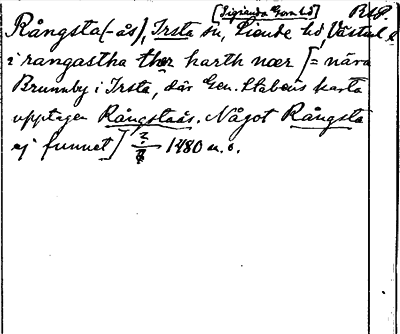 [Siende Gamla] R18.
Rångsta(-ås), Irsta sn, Siende hd, Västml.
i rangastha ther harth nær [= nära
Brunnby i Irsta, där Gen. Stabens karta
upptager Rångstaås. Något Rångsta
ej funnet] 1480 u. o.